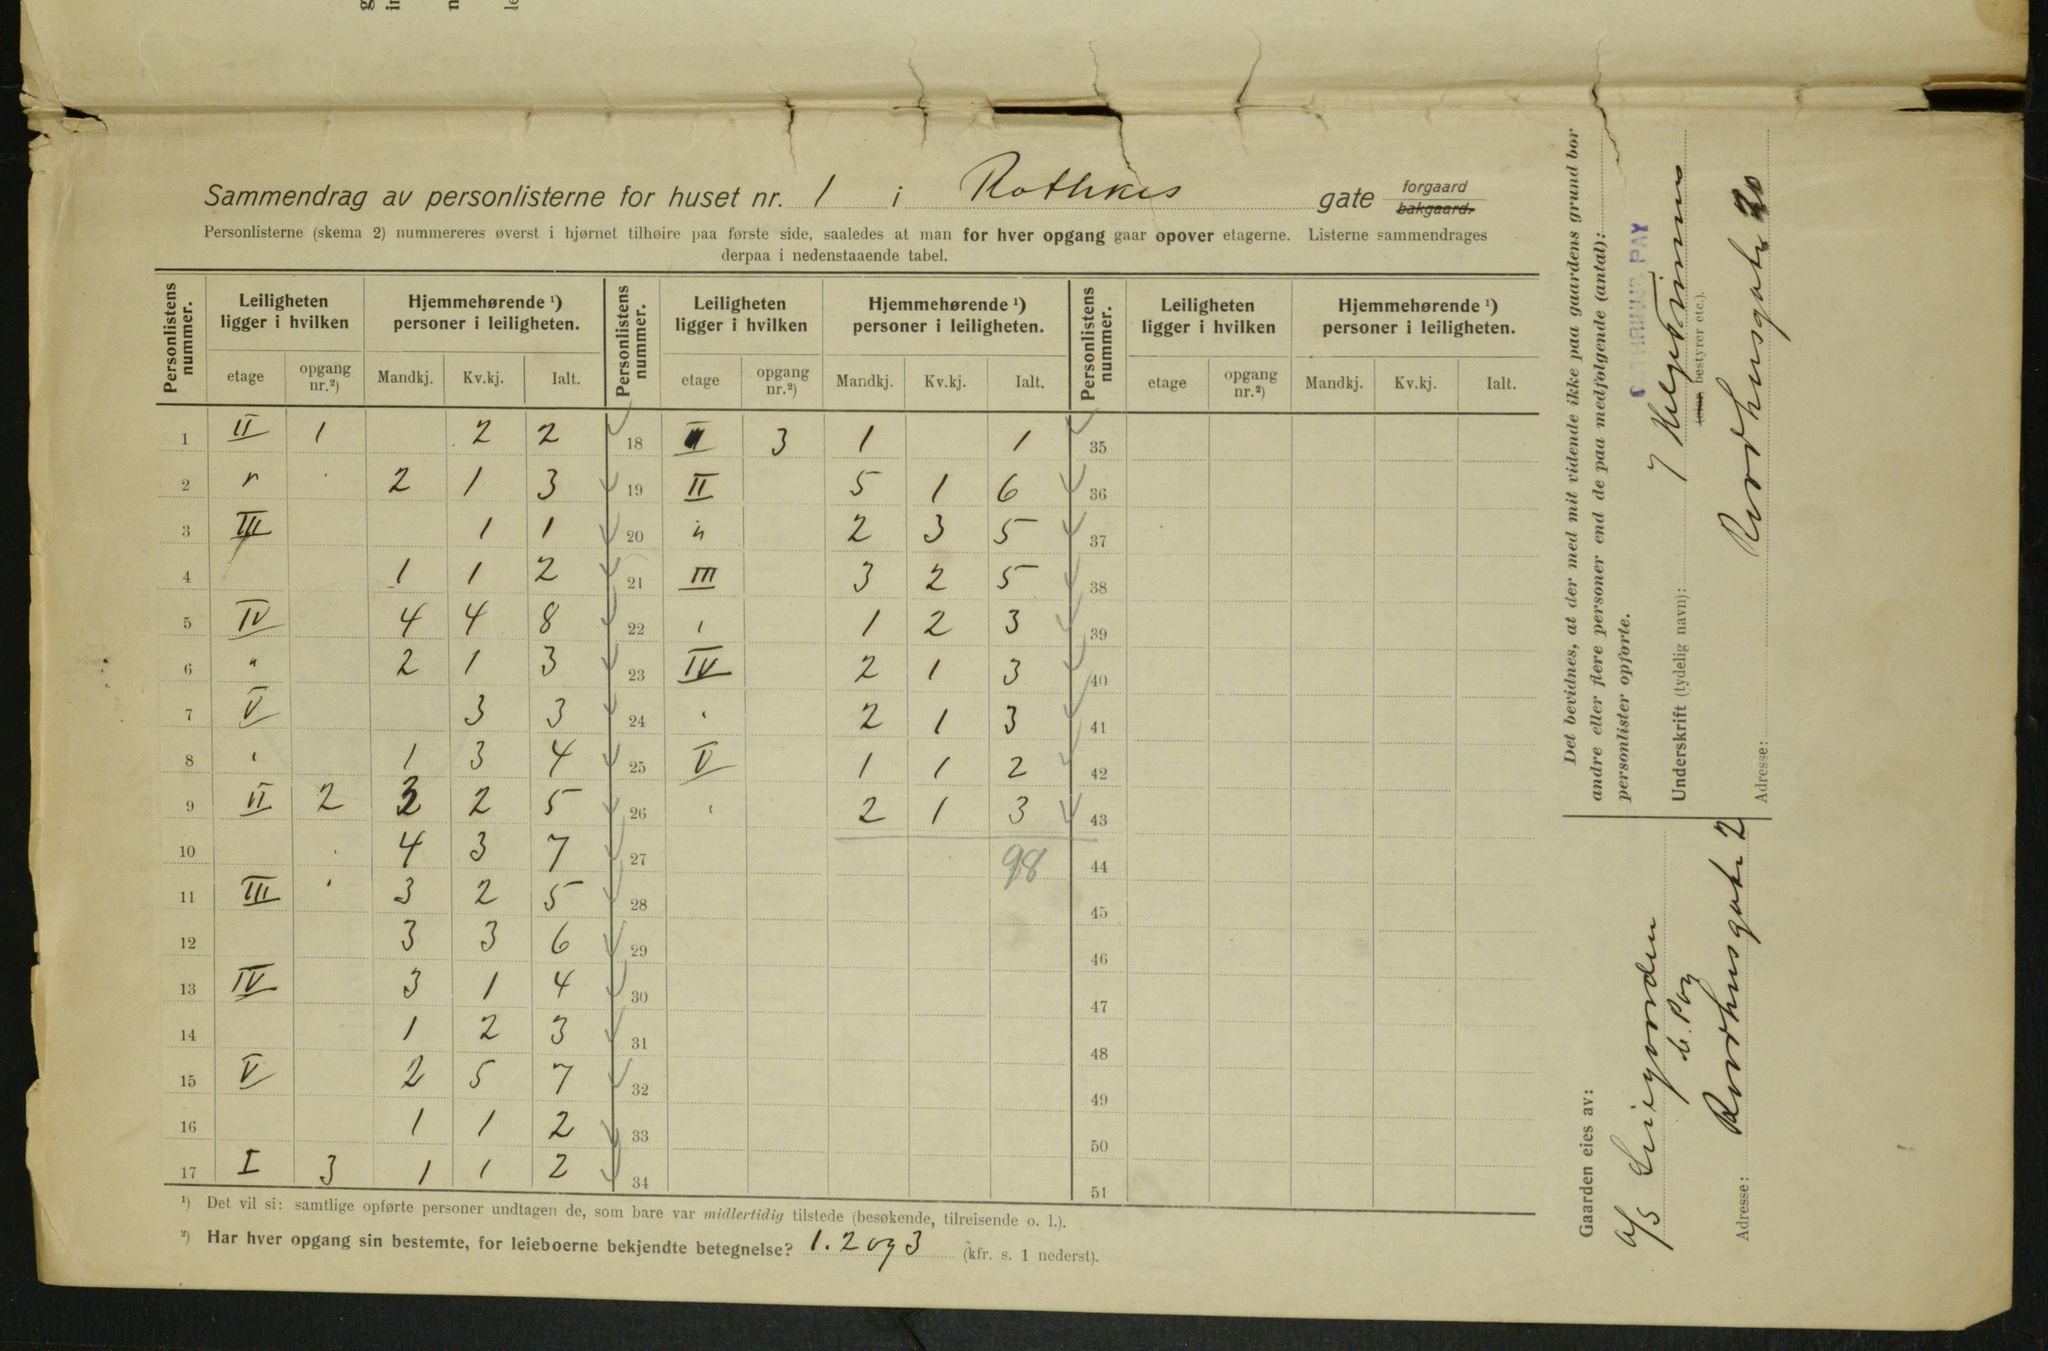 Sammendrag av personlisterne for huset nr. 1 i Rathkes gate forgaard bakgaard.
Personlisterne (skema 2) nummereres øverst i hjørnet tilhøire paa første side, saaledes at man for hver opgang gaar opover etagerne. Listerne sammendrages
derpaa i nedenstaaende tabel.
Personlistens nummer. Leiligheten ligger i hvilken Hjemmehørende ¹) personer i leiligheten. Personlistens nummer. Leiligheten ligger i hvilken Hjemmehørende ¹) personer i leiligheten. Personlistens nummer. Leiligheten ligger i hvilken Hjemmehørende ¹) personer i leiligheten.
etage opgang nr.²) Mandkj. Kv.kj. Ialt. etage opgang nr.²) Mandkj. Kv.kj. Ialt. etage opgang nr.²) Mandkj. Kv.kj. Ialt.
1 II 1 2 2 18 II 3 1 1 35
2 " 2 1 3 19 II 5 1 6 36
3 III 1 1 20 " 2 3 5 37
4 1 1 2 21 III 3 2 5 38
5 IV 4 4 8 22 " 1 2 3 39
6 " 2 1 3 23 IV 2 1 3 40
7 V 3 3 24 " 2 1 3 41
8 " 1 3 4 25 V 1 1 2 42
9 II 2 3 2 5 26 " 2 1 3 43
10 4 3 7 27 98 44
11 III 3 2 5 28 45
12 3 3 6 29 46
13 IV 3 1 4 30 47
14 1 2 3 31 48
15 V 2 5 7 32 49
16 1 1 2 33 50
17 I 3 1 1 2 34 51
¹) Det vil si: samtlige opførte personer undtagen de, som bare var midlertidig tilstede (besøkende, tilreisende o. l.).
²) Har hver opgang sin bestemte, for leieboerne bekjendte betegnelse? 1. 2 og 3 (kfr. s. 1 nederst).
Det bevidnes, at der med mit vidende ikke paa gaardens grund bor
andre eller flere personer end de paa medfølgende (antal):
personlister opførte.
PAY
Underskrift (tydelig navn):
bestyrer etc.).
Adresse: Raadhusgata 20
Gaarden eies av:
A/S Leiegaarden
C. Pay
Adresse: Raadhusgata 2